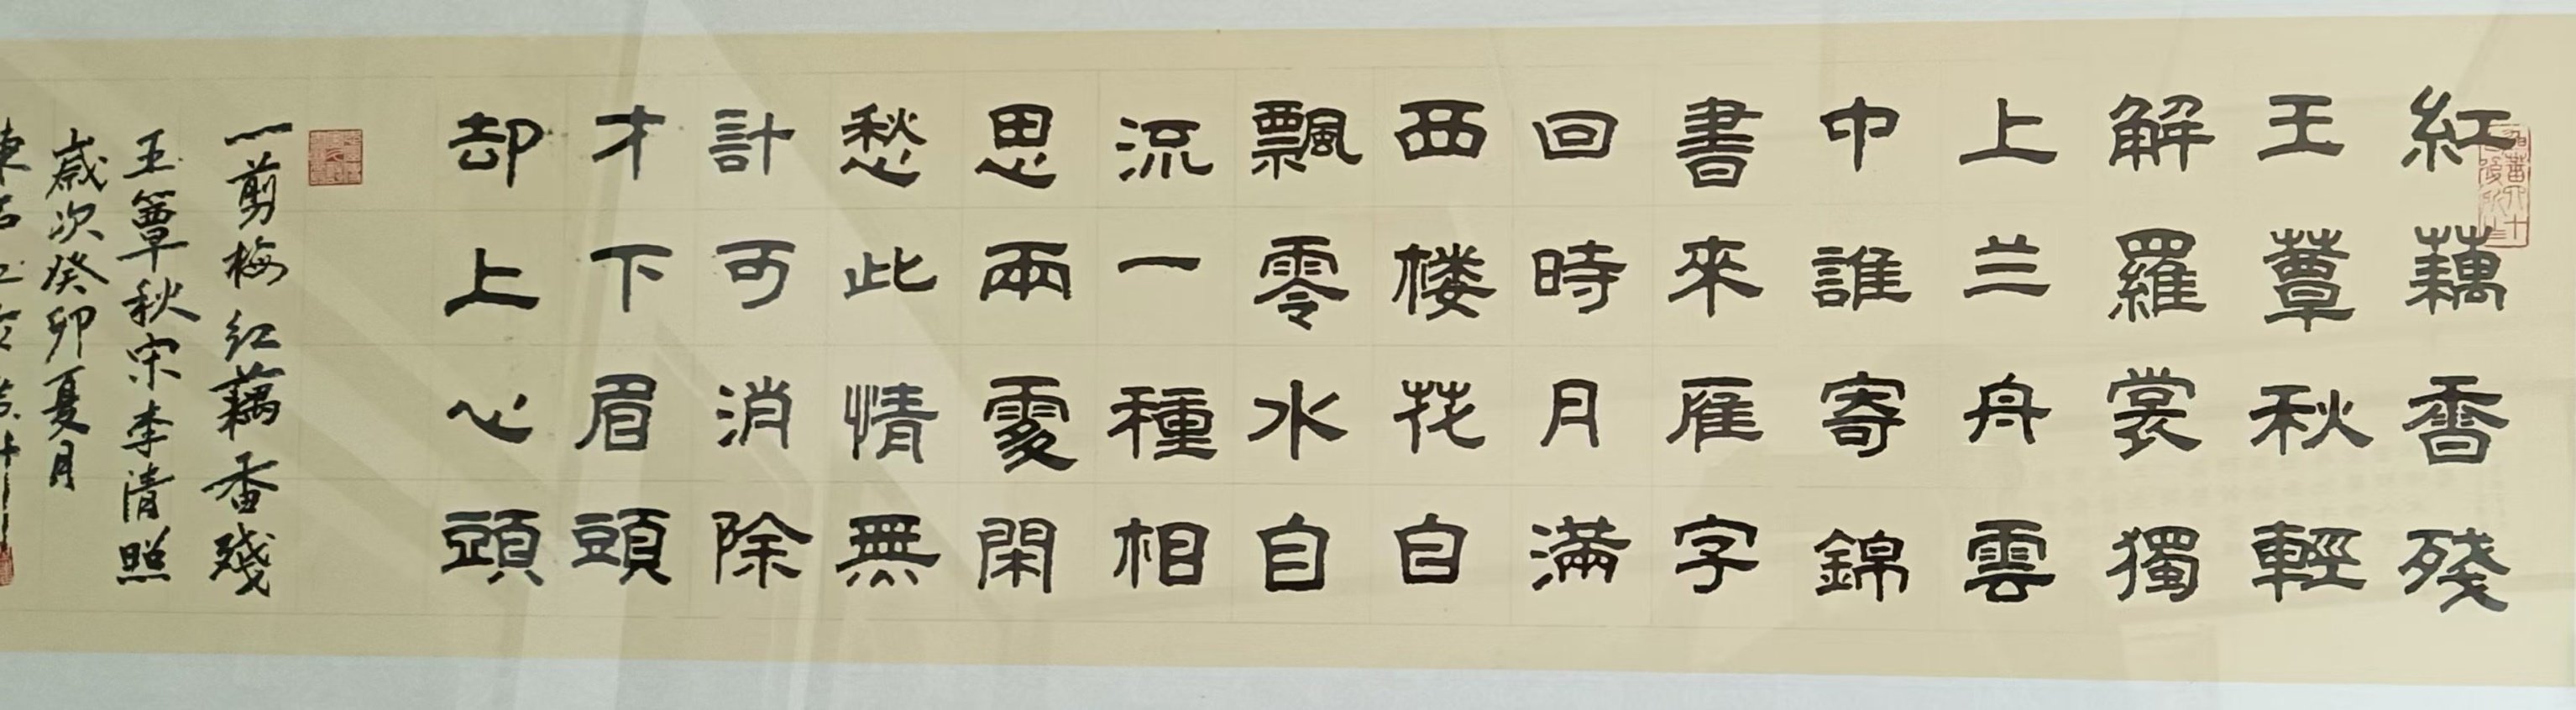 紅藕香殘
玉簟秋輕
解羅裳獨
上兰舟雲
中誰寄錦
書來雁字
回時月滿
西楼花自
飄零水自
流一種相
思兩處閑
愁此情無
計可消除
才下眉頭
却上心頭
一剪梅红藕香殘
玉簟秋宋李清照
歲次癸卯夏月